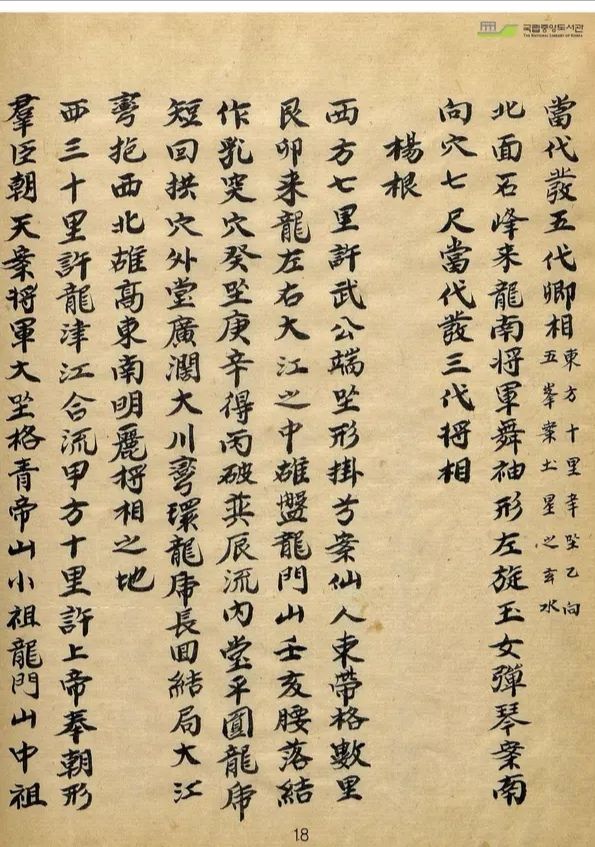 국립중앙도서관
THE NATIONAL LIBRARY OF KOREA
當代發五代卿相
東方十里辛坐乙向
五峯案土星之玄水
北面石峰来龍南將軍舞袖形左旋玉女彈琴案南
向穴七尺當代發三代将相
楊根
西方七里許武公端坐形掛弓案仙人束帶格數里
艮卯来龍左右大江之中雄盤龍門山壬亥腰落結
作乳突穴癸坐庚辛得丙破巽辰流內堂平圓龍虎
短回拱穴外堂廣濶大川彎環龍虎長回結局大江
彎抱西北雄高東南明麗将相之地
西三十里許龍津江合流甲方十里許上帝奉朝形
羣臣朝天案將軍大坐格青帝山小祖龍門山中祖
18